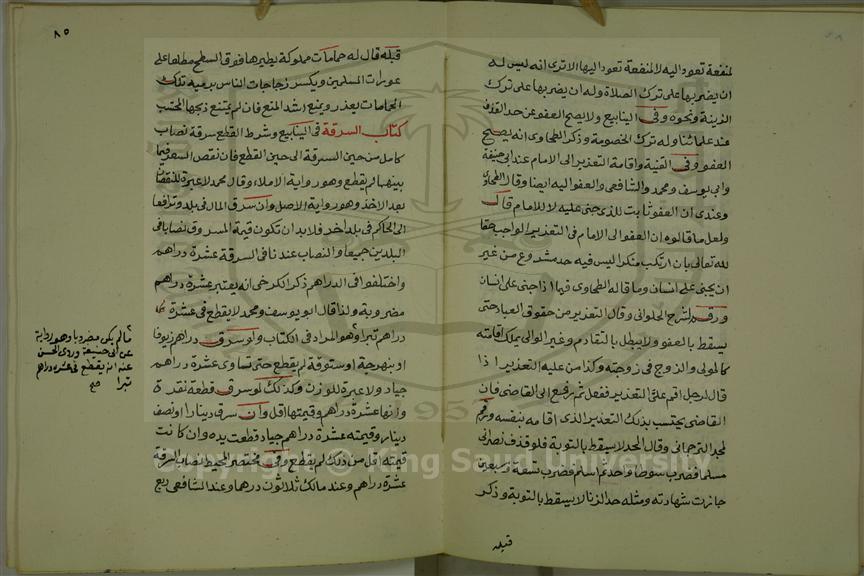 لمنفعة تعود اليه لا لمنفعة تعود اليها الا ترى انه ليس له
ان يضربها على ترك الصلاة وله ان يضربها على ترك
الزينة ونحوه وفى الينابيع ولا يصح العفو عن حد القذف
عند علمائنا وله ترك الخصومة وذكر الطحاوى انه يصح
العفو وفى القنية واقامة التعزير الى الامام عند ابى حنيفة
وابى يوسف ومحمد والشافعى والعفو اليه ايضا وقال الطحاوى
وعندى ان العفو ثابت للذى جنى عليه لا للامام قال
ولعل ما قالوه ان العفو الى الامام فى التعزير الواجب حقا
لله تعالى بان ارتكب منكرا ليس فيه حد مشروع من غير
ان يجنى على انسان وما قاله الطحاوى فيما اذا جنى على انسان
ورقم لشرح الحلوانى وقال التعزير من حقوق العباد حتى
يسقط بالعفو ولا يبطل بالتقادم وغير الوالى يملك اقامته
كالمولى والزوج فى زوجته وكذا من عليه التعزير اذا
قال لرجل اقم على التعزير ففعل ثم رفع الى القاضى فان
القاضى يحتسب بذلك التعزير الذى اقامه بنفسه ورقم
لمجد الترجمانى وقال الحد لا يسقط بالتوبة فلو قذف نصرانى
مسلما فضرب سوطا واحدا ثم اسلم فضرب تسعة وسبعين
جازت شهادته ومثله حد الزنا لا يسقط بالتوبة وذكر
قبله
٨٥
قبله قال له حمامات مملوكة يطيرها فوق السطح مطلعا على
عورات المسلمين ويكسر زجاجات الناس برميه تلك
الحمامات يعذر ويمنع اشد المنع فان لم يمتنع ذبحها المحتسب
كتاب السرقة فى الينابيع وشرط القطع سرقة نصاب
كامل من حين السرقة الى حين القطع فان نقص السعر فيما
بينهما لم يقطع وهو رواية الاملاء وقال محمد لا عبرة للنقصان
بعد الاخذ وهو رواية الاصل وان سرق المال فى بلد وترافعا
الى الحاكم فى بلد اخر فلا بد ان تكون قيمة المسروق نصابا فى
البلدين جميعا والنصاب عندنا فى السرقة عشرة دراهم
واختلفوا فى الدراهم ذكر الكرخى انه يعتبر عشرة دراهم
مضروبة ولذا قال ابو يوسف ومحمد لا يقطع فى عشرة
دراهم تبرا وهو المراد فى الكتاب ولو سرق دراهم زيوفا
او بنهرجة او ستوقة لم يقطع حتى تساوى عشرة دراهم
جياد ولا عبرة للوزن وكذلك لو سرق قطعة نقرة
وزنها عشرة دراهم وقيمتها اقل وان سرق دينارا او نصف
دينار وقيمته عشرة دراهم جياد قطعت يده وان كانت
قيمته اقل من ذلك لم يقطع وفى مختصر المحيط نصاب السرقة
عشرة دراهم وعند مالك ثلاثون درهما وعند الشافعى ربع
ما لم يكن مضروبا وهو رواية
عن ابى حنيفة وروى الحسن
عنه انه يقطع فى عشرة دراهم
تبرا صح
Copyright © King Saud University